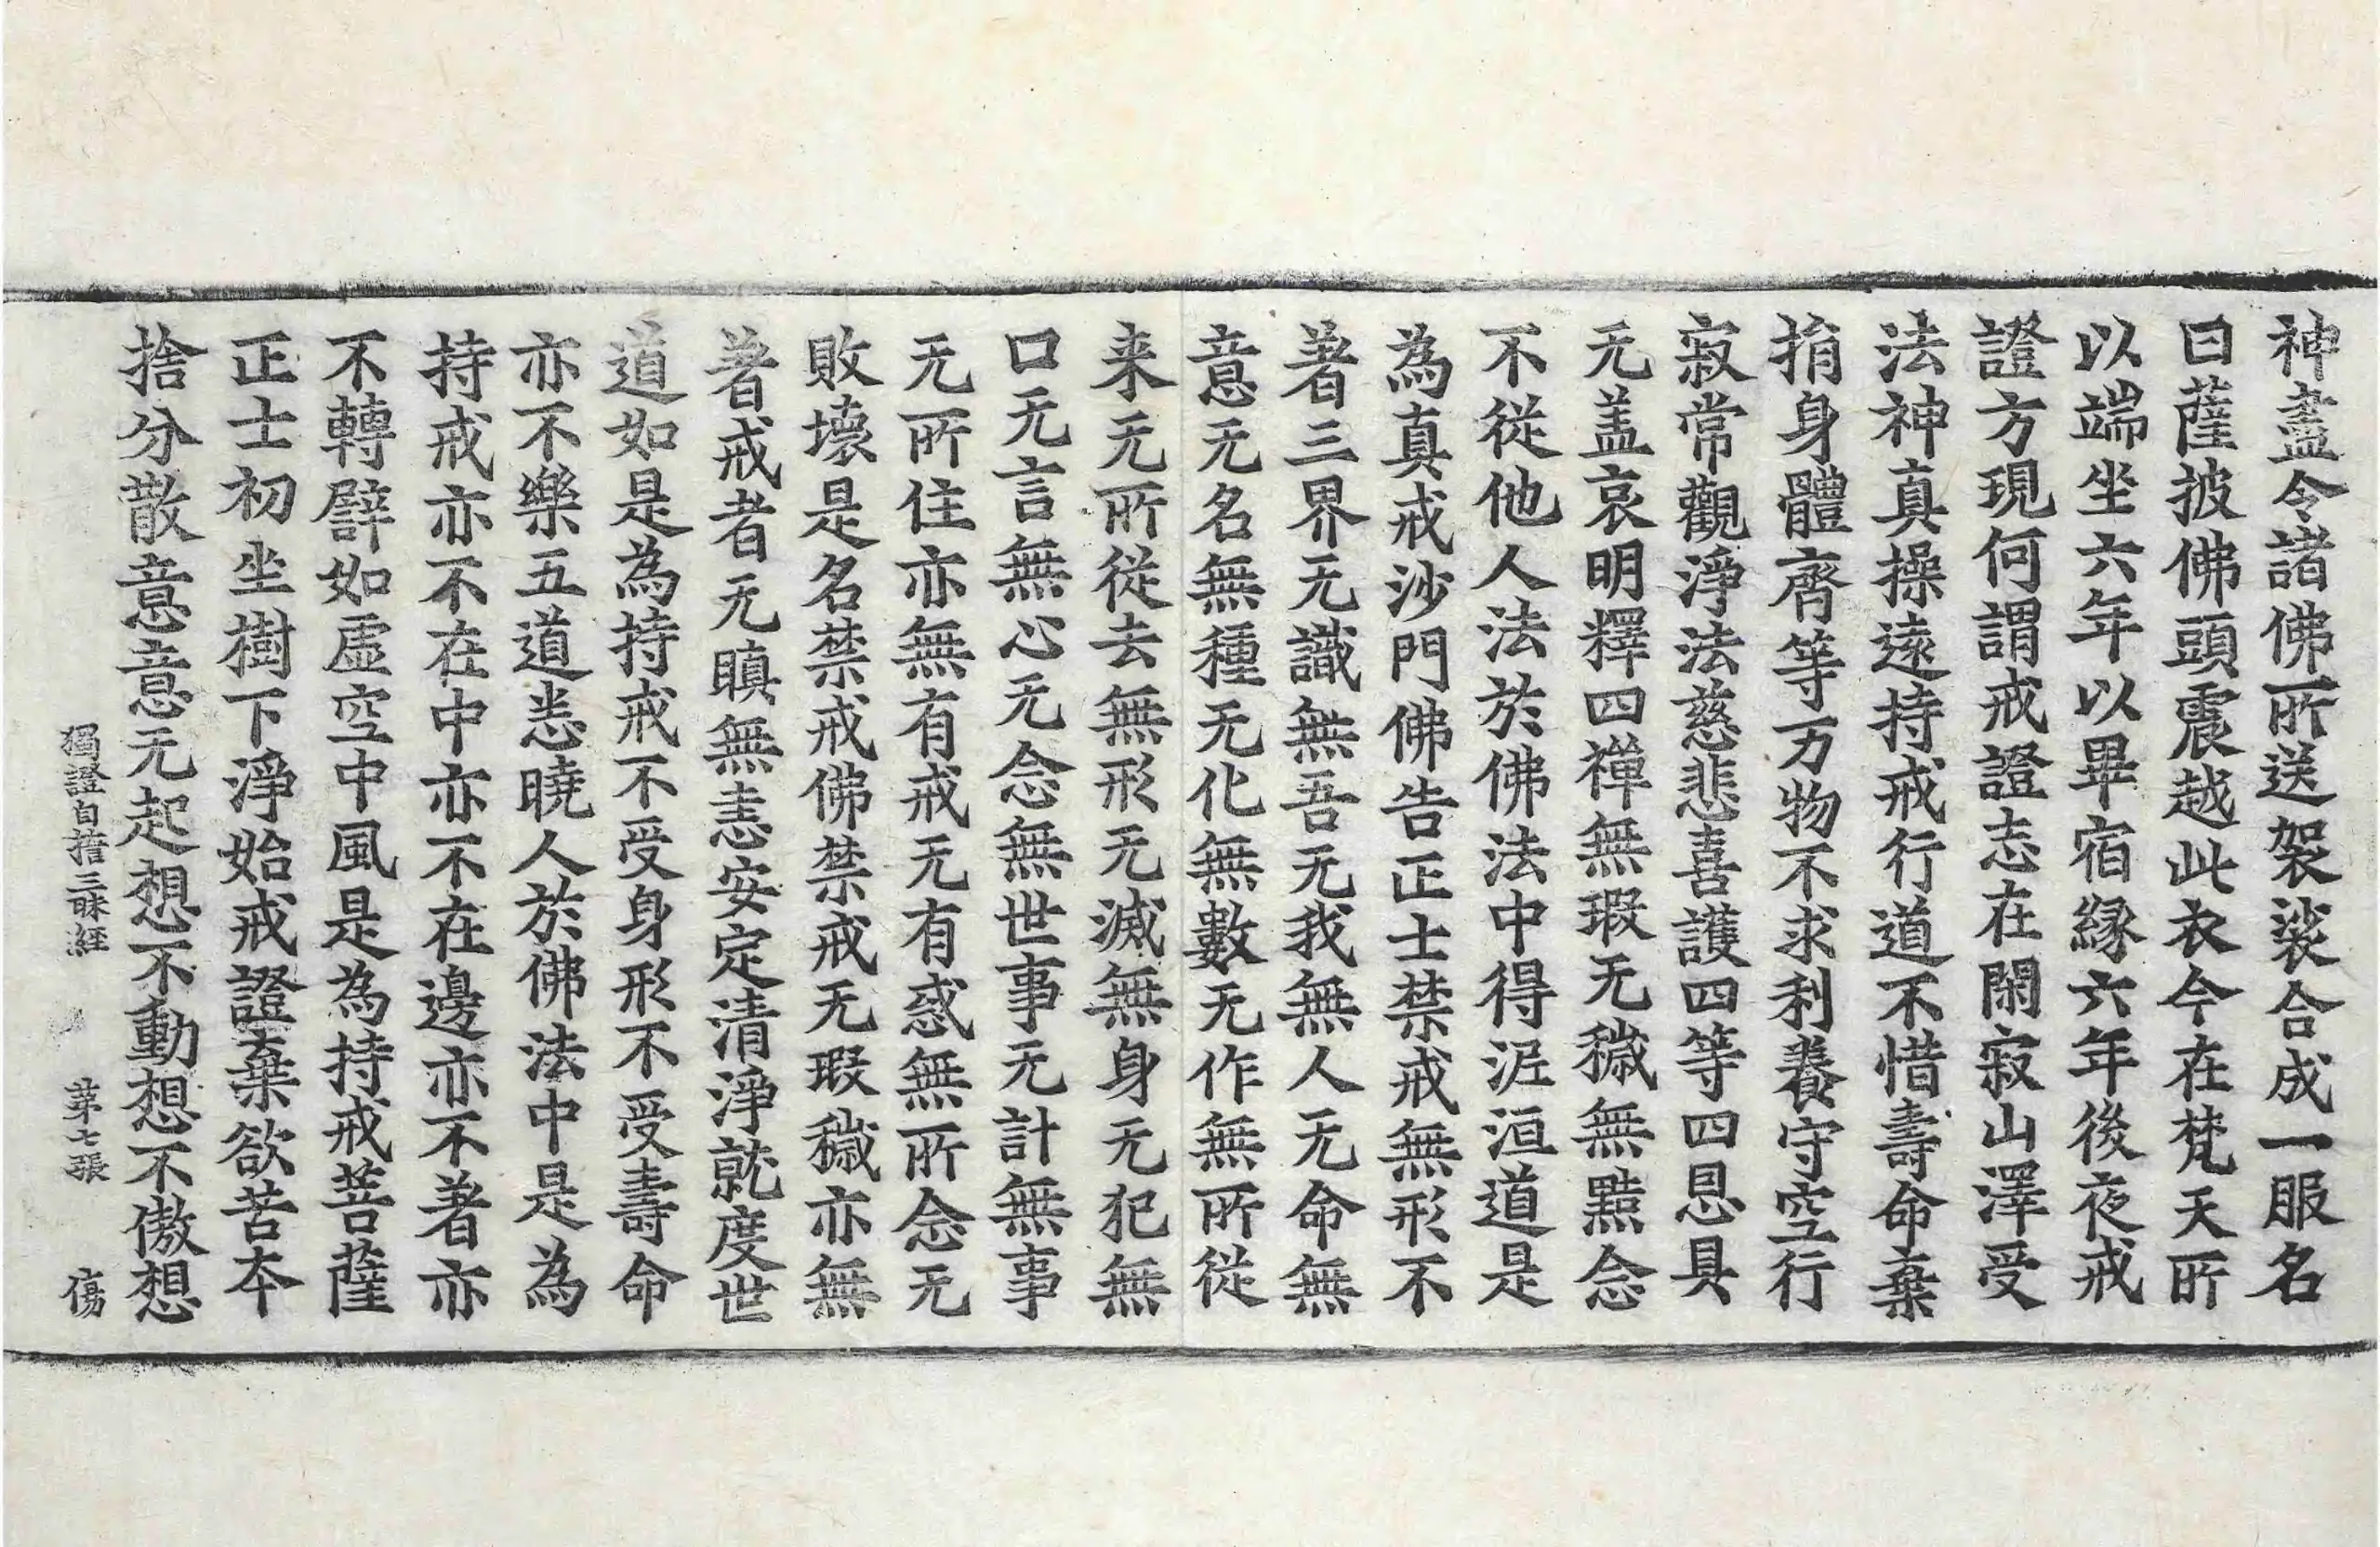 神盡令諸佛所送袈裟合成一服名
曰薩披佛頭震越此衣今在梵天所
以端坐六年以畢宿縁六年後夜戒
證方現何謂戒證志在閑寂山澤受
法神真操遠持戒行道不惜壽命棄
捐身體齊等万物不求利養守空行
寂常觀淨法慈悲喜護四等四恩具
无盖哀明釋四禪無瑕无穢無黠念
不從他人法於佛法中得泥洹道是
為真戒沙門佛告正士禁戒無形不
著三界无識無吾无我無人无命無
意无名無種无化無數无作無所從
来无所從去無形无滅無身无犯無
口无言無心无念無世事无計無事
无所住亦無有戒无有惑無所念无
敗壞是名禁戒佛禁戒无瑕穢亦無
著戒者无瞋無恚安定清淨就度世
道如是為持戒不受身形不受壽命
亦不樂五道悉曉人於佛法中是為
持戒亦不在中亦不在邊亦不著亦
不轉譬如虛空中風是為持戒菩薩
正士初坐樹下淨始戒證棄欲苦本
捨分散意意无起想不動想不傲想
獨證自擔三昧經 第七張 傷